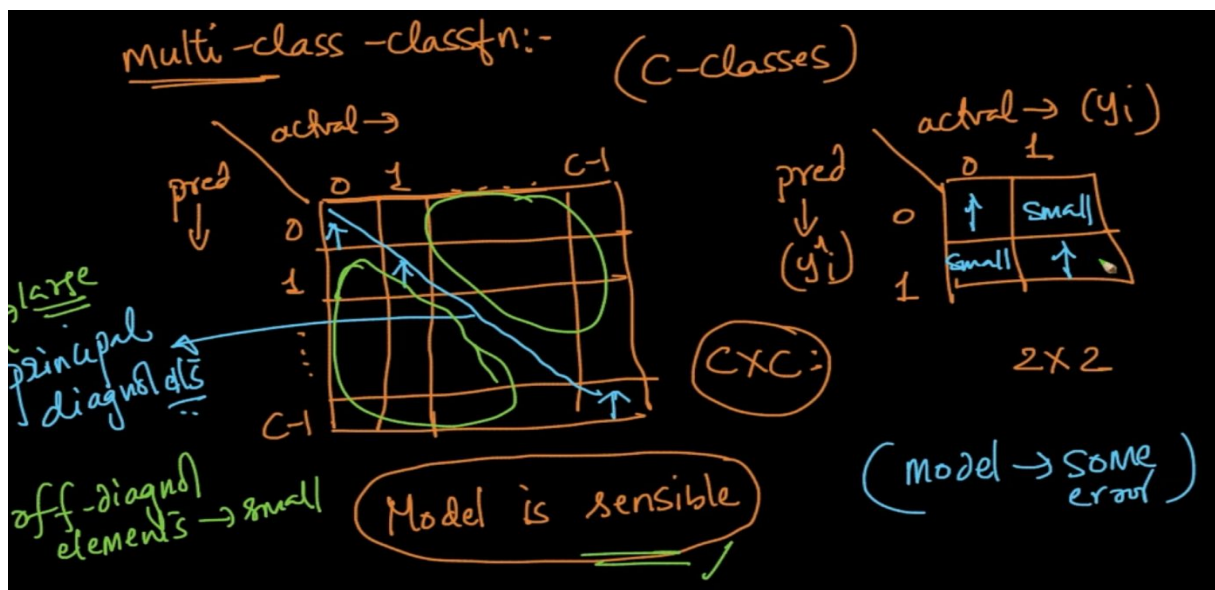 multi-class-classfn:-
(C-classes)
actual →
pred ↓
0 1 - - - - C-1
0
1
⋮
C-1
large
principal
diagnol els
off-diagnol
elements → small
Model is sensible
CXC:
actual → (yi)
pred ↓
(ŷi)
0 1
0 ↑ small
1 small ↑
2X2
(model → some
error)